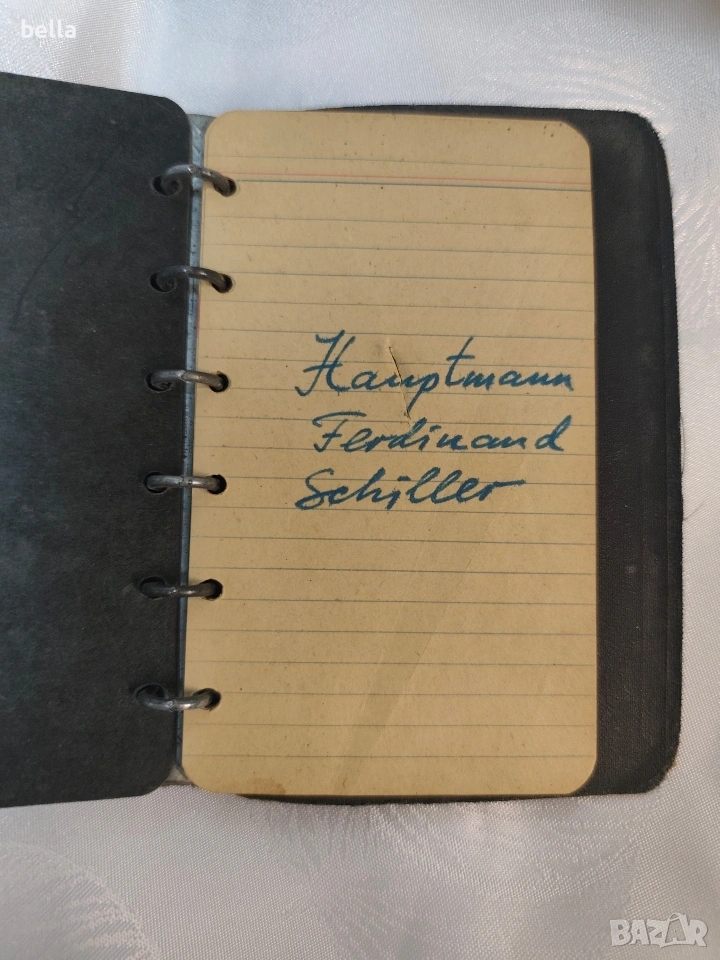 bella
Hauptmann
Ferdinand
Schiller
BAZAR